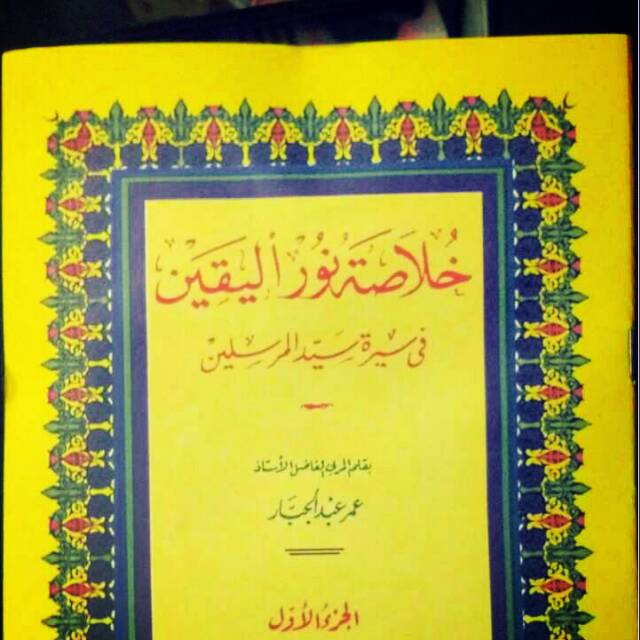 خُلَاصَة نُورُ اليَقَين
فى سيرة سيّد المرسلين
بقلم المربى الفاضل الأستاذ
عمر عبد الجبّار
الجزء الأوّل